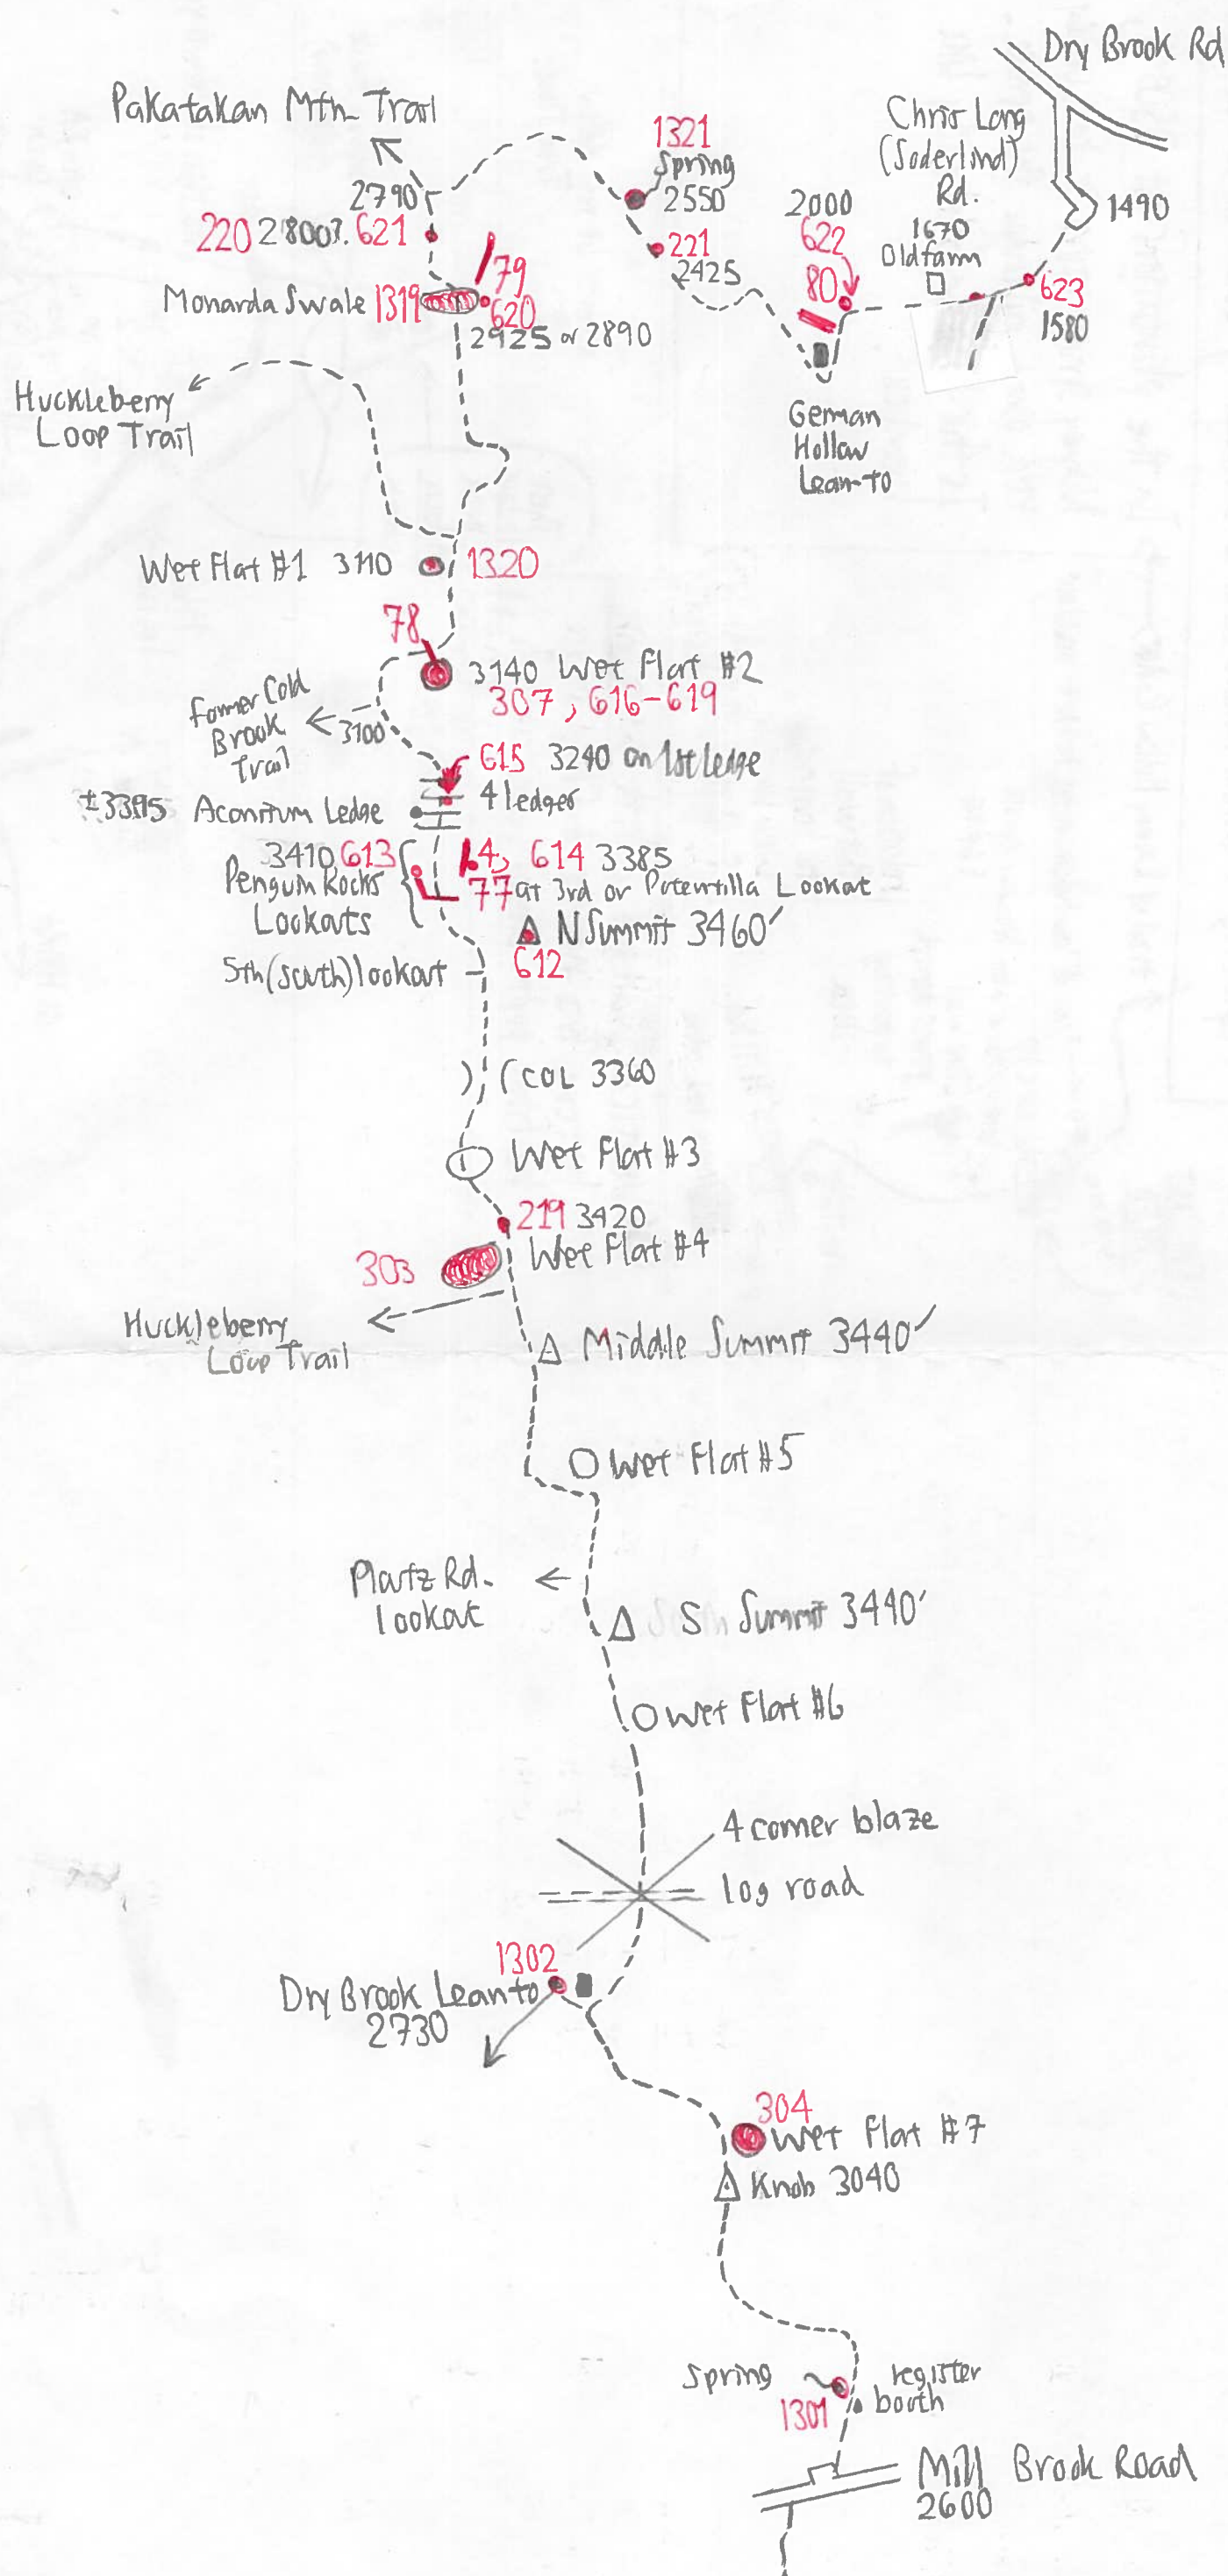 Dry Brook Rd
Pakatakan Mtn Trail
Chris Long
(Soderlind)
Rd.
1321
Spring
2550
2790
2000
1490
220 2800?. 621
221
2425
622
1670
Old farm
79
80
623
1580
Monarda Swale 1319
620
2925 or 2890
Huckleberry
Loop Trail
German
Hollow
Lean-to
Wet Flat #1 3110
1320
78
3140 Wet Flat #2
307, 616-619
Former Cold
Brook
Trail
3100
615 3240 on 1st ledge
4 ledges
Aconitum Ledge
3410 613
4, 614 3385
Penguin Rocks
Lookouts
77 at 3rd or Potentilla Lookout
N Summit 3460'
612
5th (south) lookout
COL 3360
Wet Flat #3
219 3420
Wet Flat #4
303
Huckleberry
Loop Trail
Middle Summit 3440'
Wet Flat #5
Platz Rd.
lookout
S Summit 3440'
Wet Flat #6
4 corner blaze
log road
1302
Dry Brook Leanto
2730
304
Wet Flat #7
Knob 3040
Spring
register
booth
1301
Mill Brook Road
2600